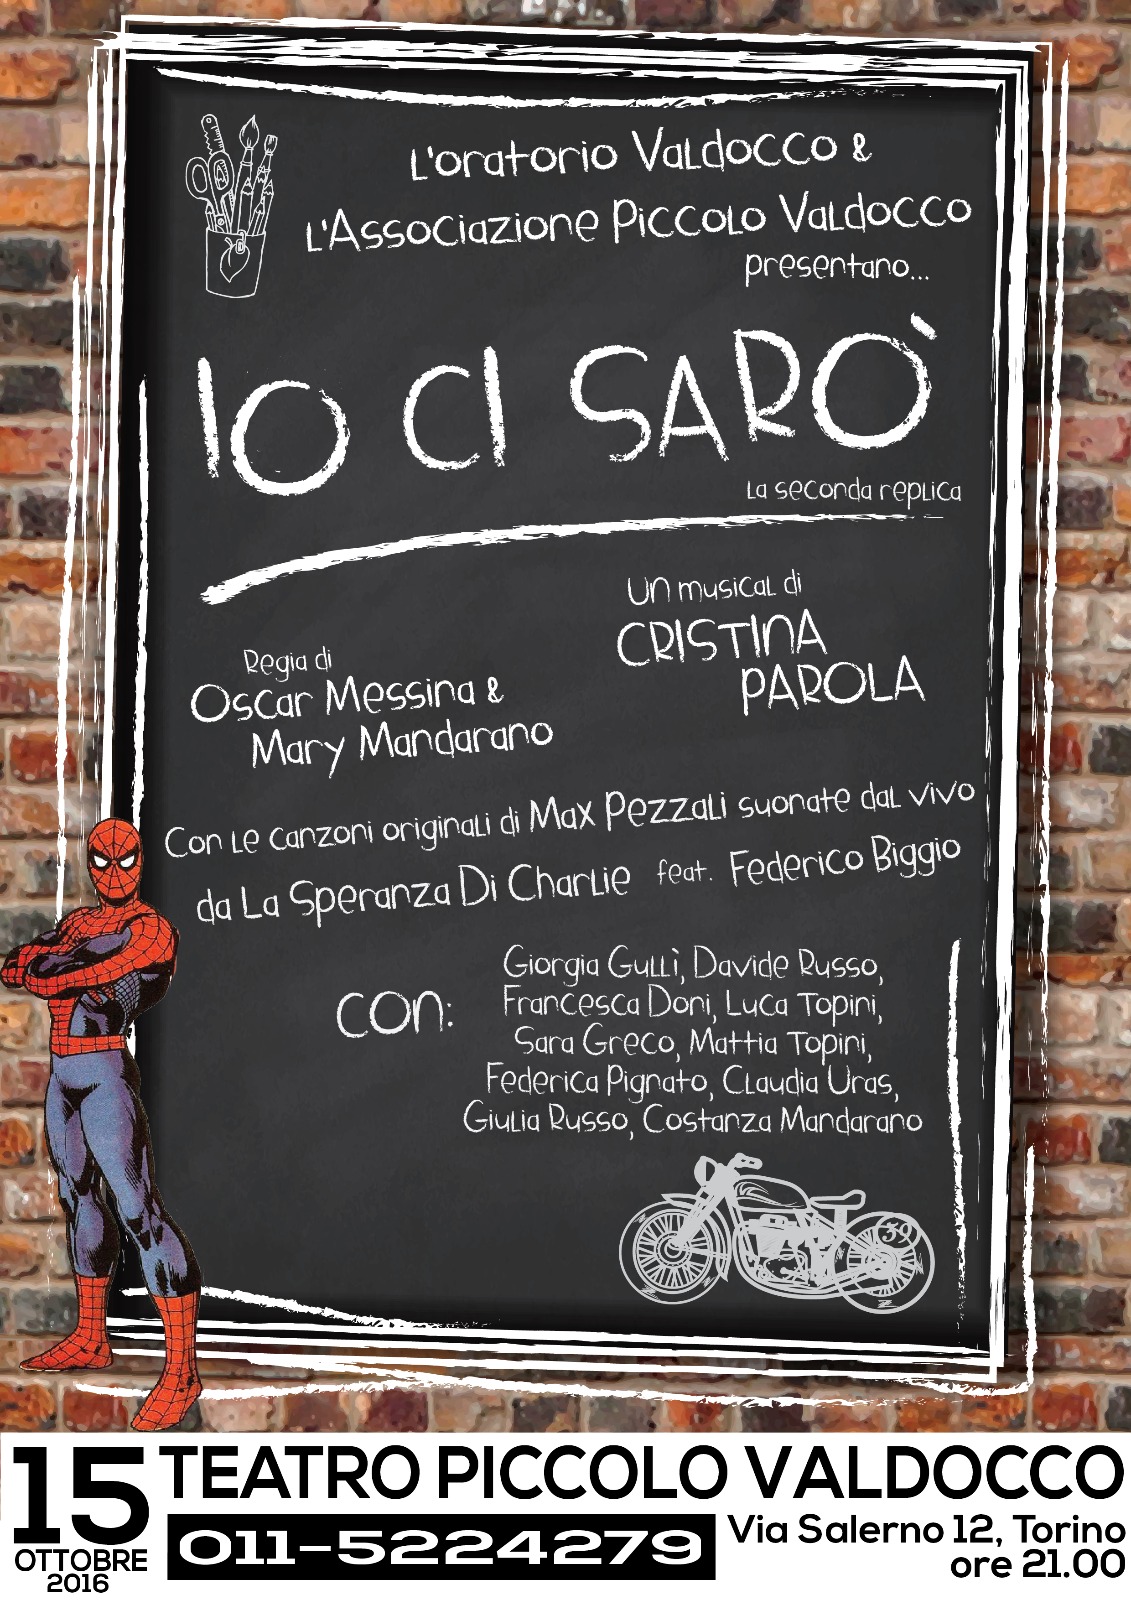 L'oratorio Valdocco &
L'Associazione Piccolo Valdocco
presentano...
IO CI SARÒ
La seconda replica
Un musical di
CRISTINA
PAROLA
Regia di
Oscar Messina &
Mary Mandarano
Con le canzoni originali di Max Pezzali suonate dal vivo
da La Speranza Di Charlie feat. Federico Biggio
con:
Giorgia Gullì, Davide Russo,
Francesca Doni, Luca Topini,
Sara Greco, Mattia Topini,
Federica Pignato, Claudia Uras,
Giulia Russo, Costanza Mandarano
39
15
OTTOBRE
2016
TEATRO PICCOLO VALDOCCO
011-5224279
Via Salerno 12, Torino
ore 21.00